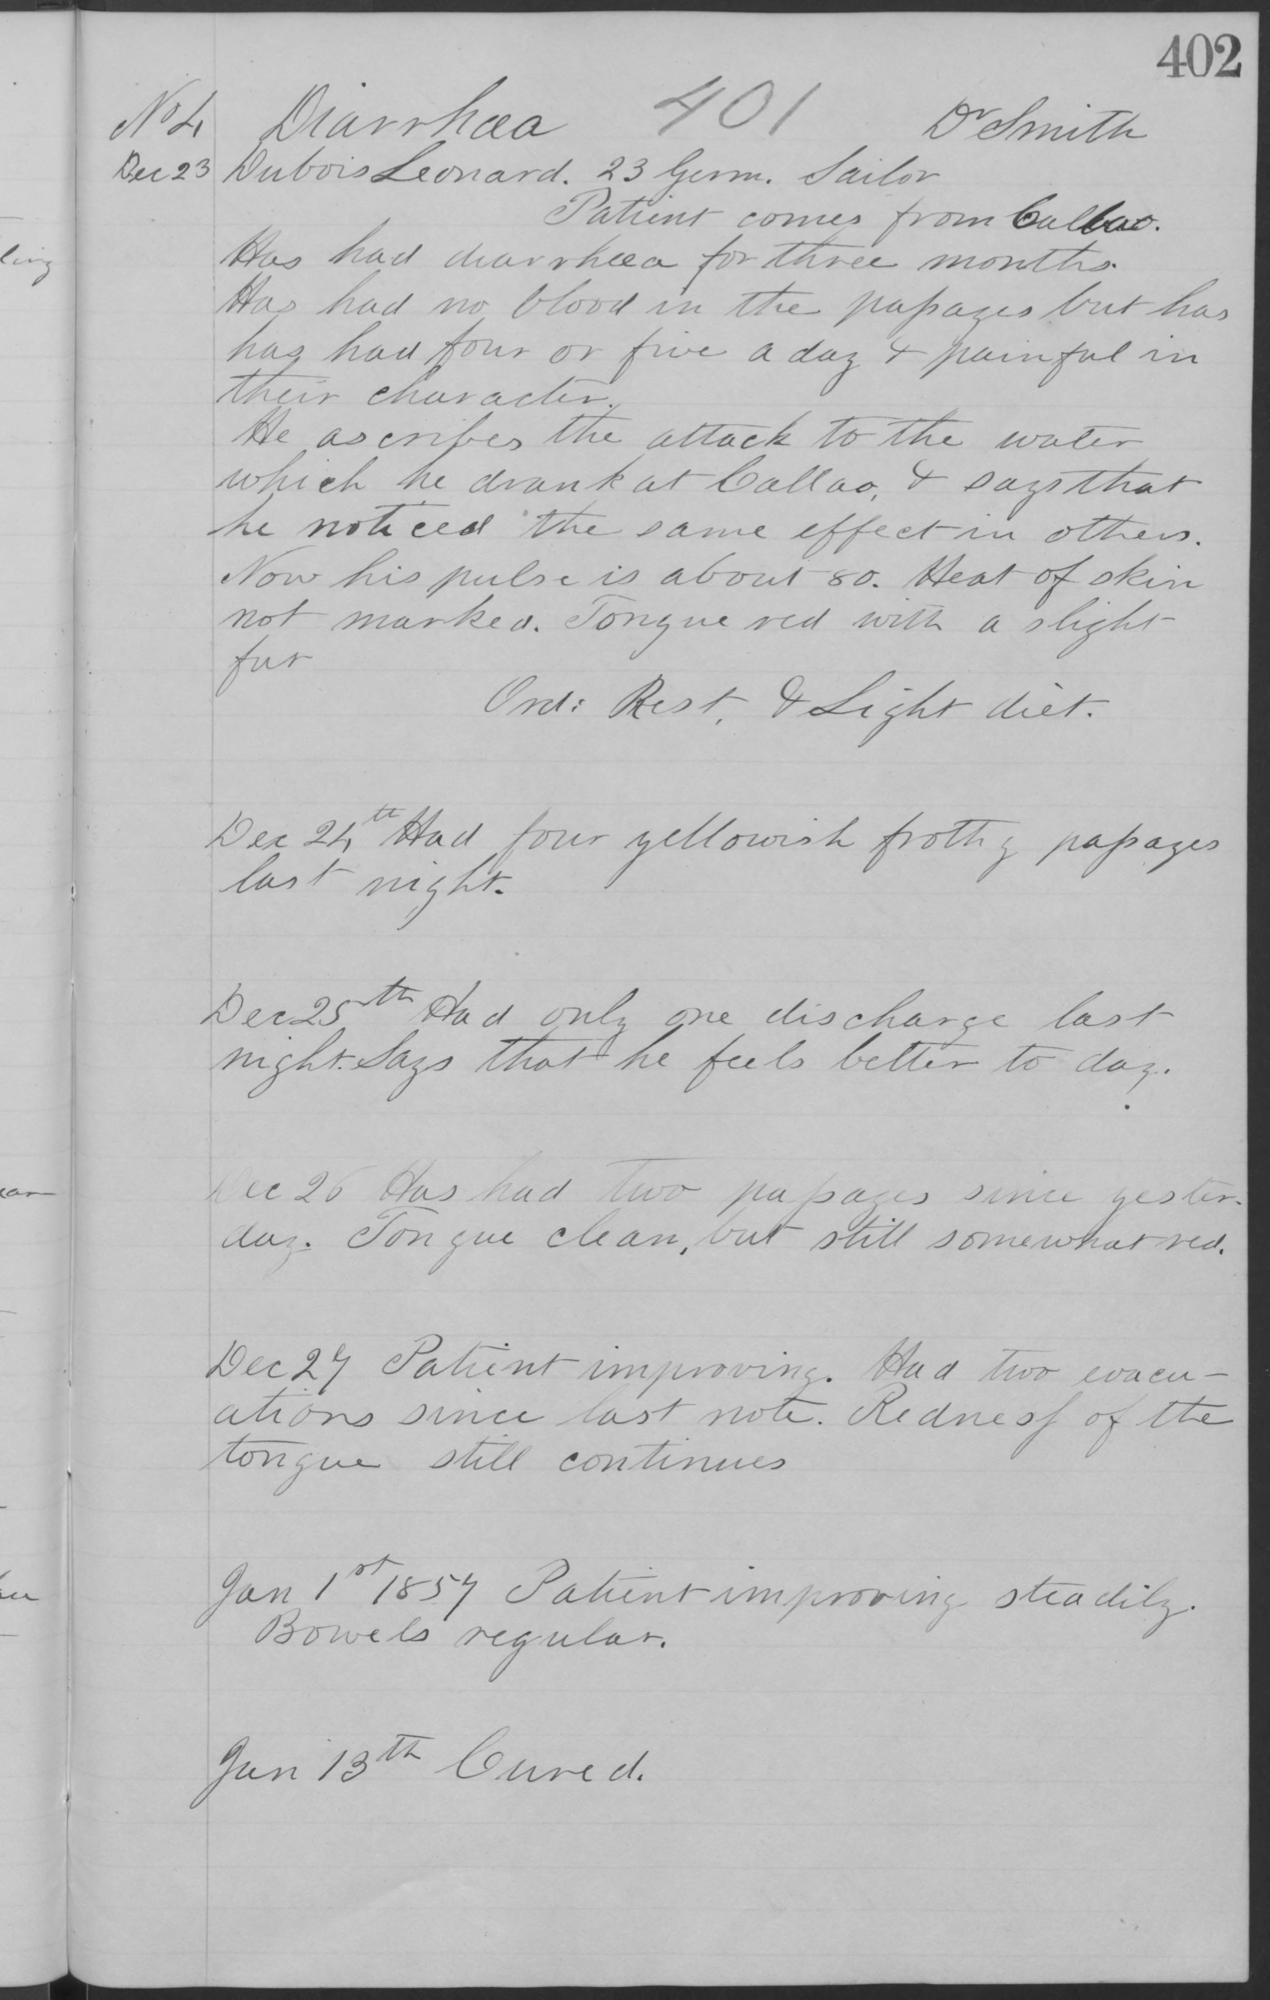 402
No 4 Diarrhœa 401 Dr Smith
Dec 23 Dubois Leonard. 23 Germ. Sailor
Patient comes from Callao.
Has had diarrhœa for three months.
Has had no blood in the paſsages but has
has had four or five a day & painful in
their character.
He ascribes the attack to the water
which he drank at Callao, & says that
he noticed the same effect in others.
Now his pulse is about 80. Heat of skin
not marked. Tongue red with a slight
fur
Ord: Rest, & Light diet.
Dec 24th Had four yellowish frothy paſsages
last night.
Dec 25th Had only one discharge last
night. Says that he feels better to day.
Dec 26 Has had two paſsages since yester-
day. Tongue clean, but still somewhat red.
Dec 27 Patient improving. Had two evacu-
ations since last note. Redneſs of the
tongue still continues
Jan 1st 1857 Patient improving steadily.
Bowels regular.
Jan 13th Cured.